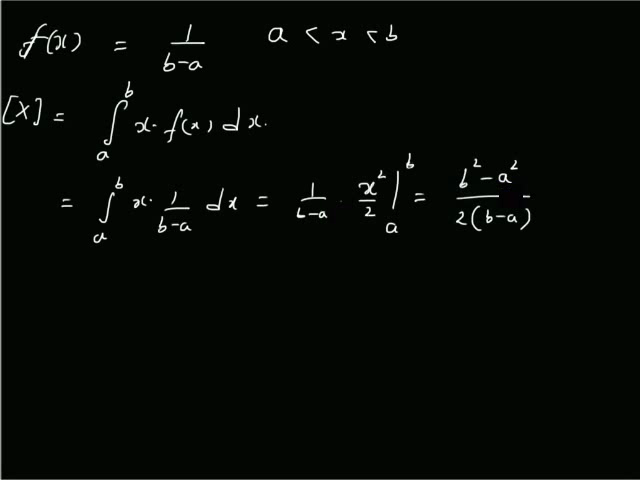 f(x) = 1/(b-a) a < x < b
[X] = ∫_a^b x· f(x) dx.
= ∫_a^b x· 1/(b-a) dx = 1/(b-a) · x²/2 |_a^b = (b²-a²)/(2(b-a))